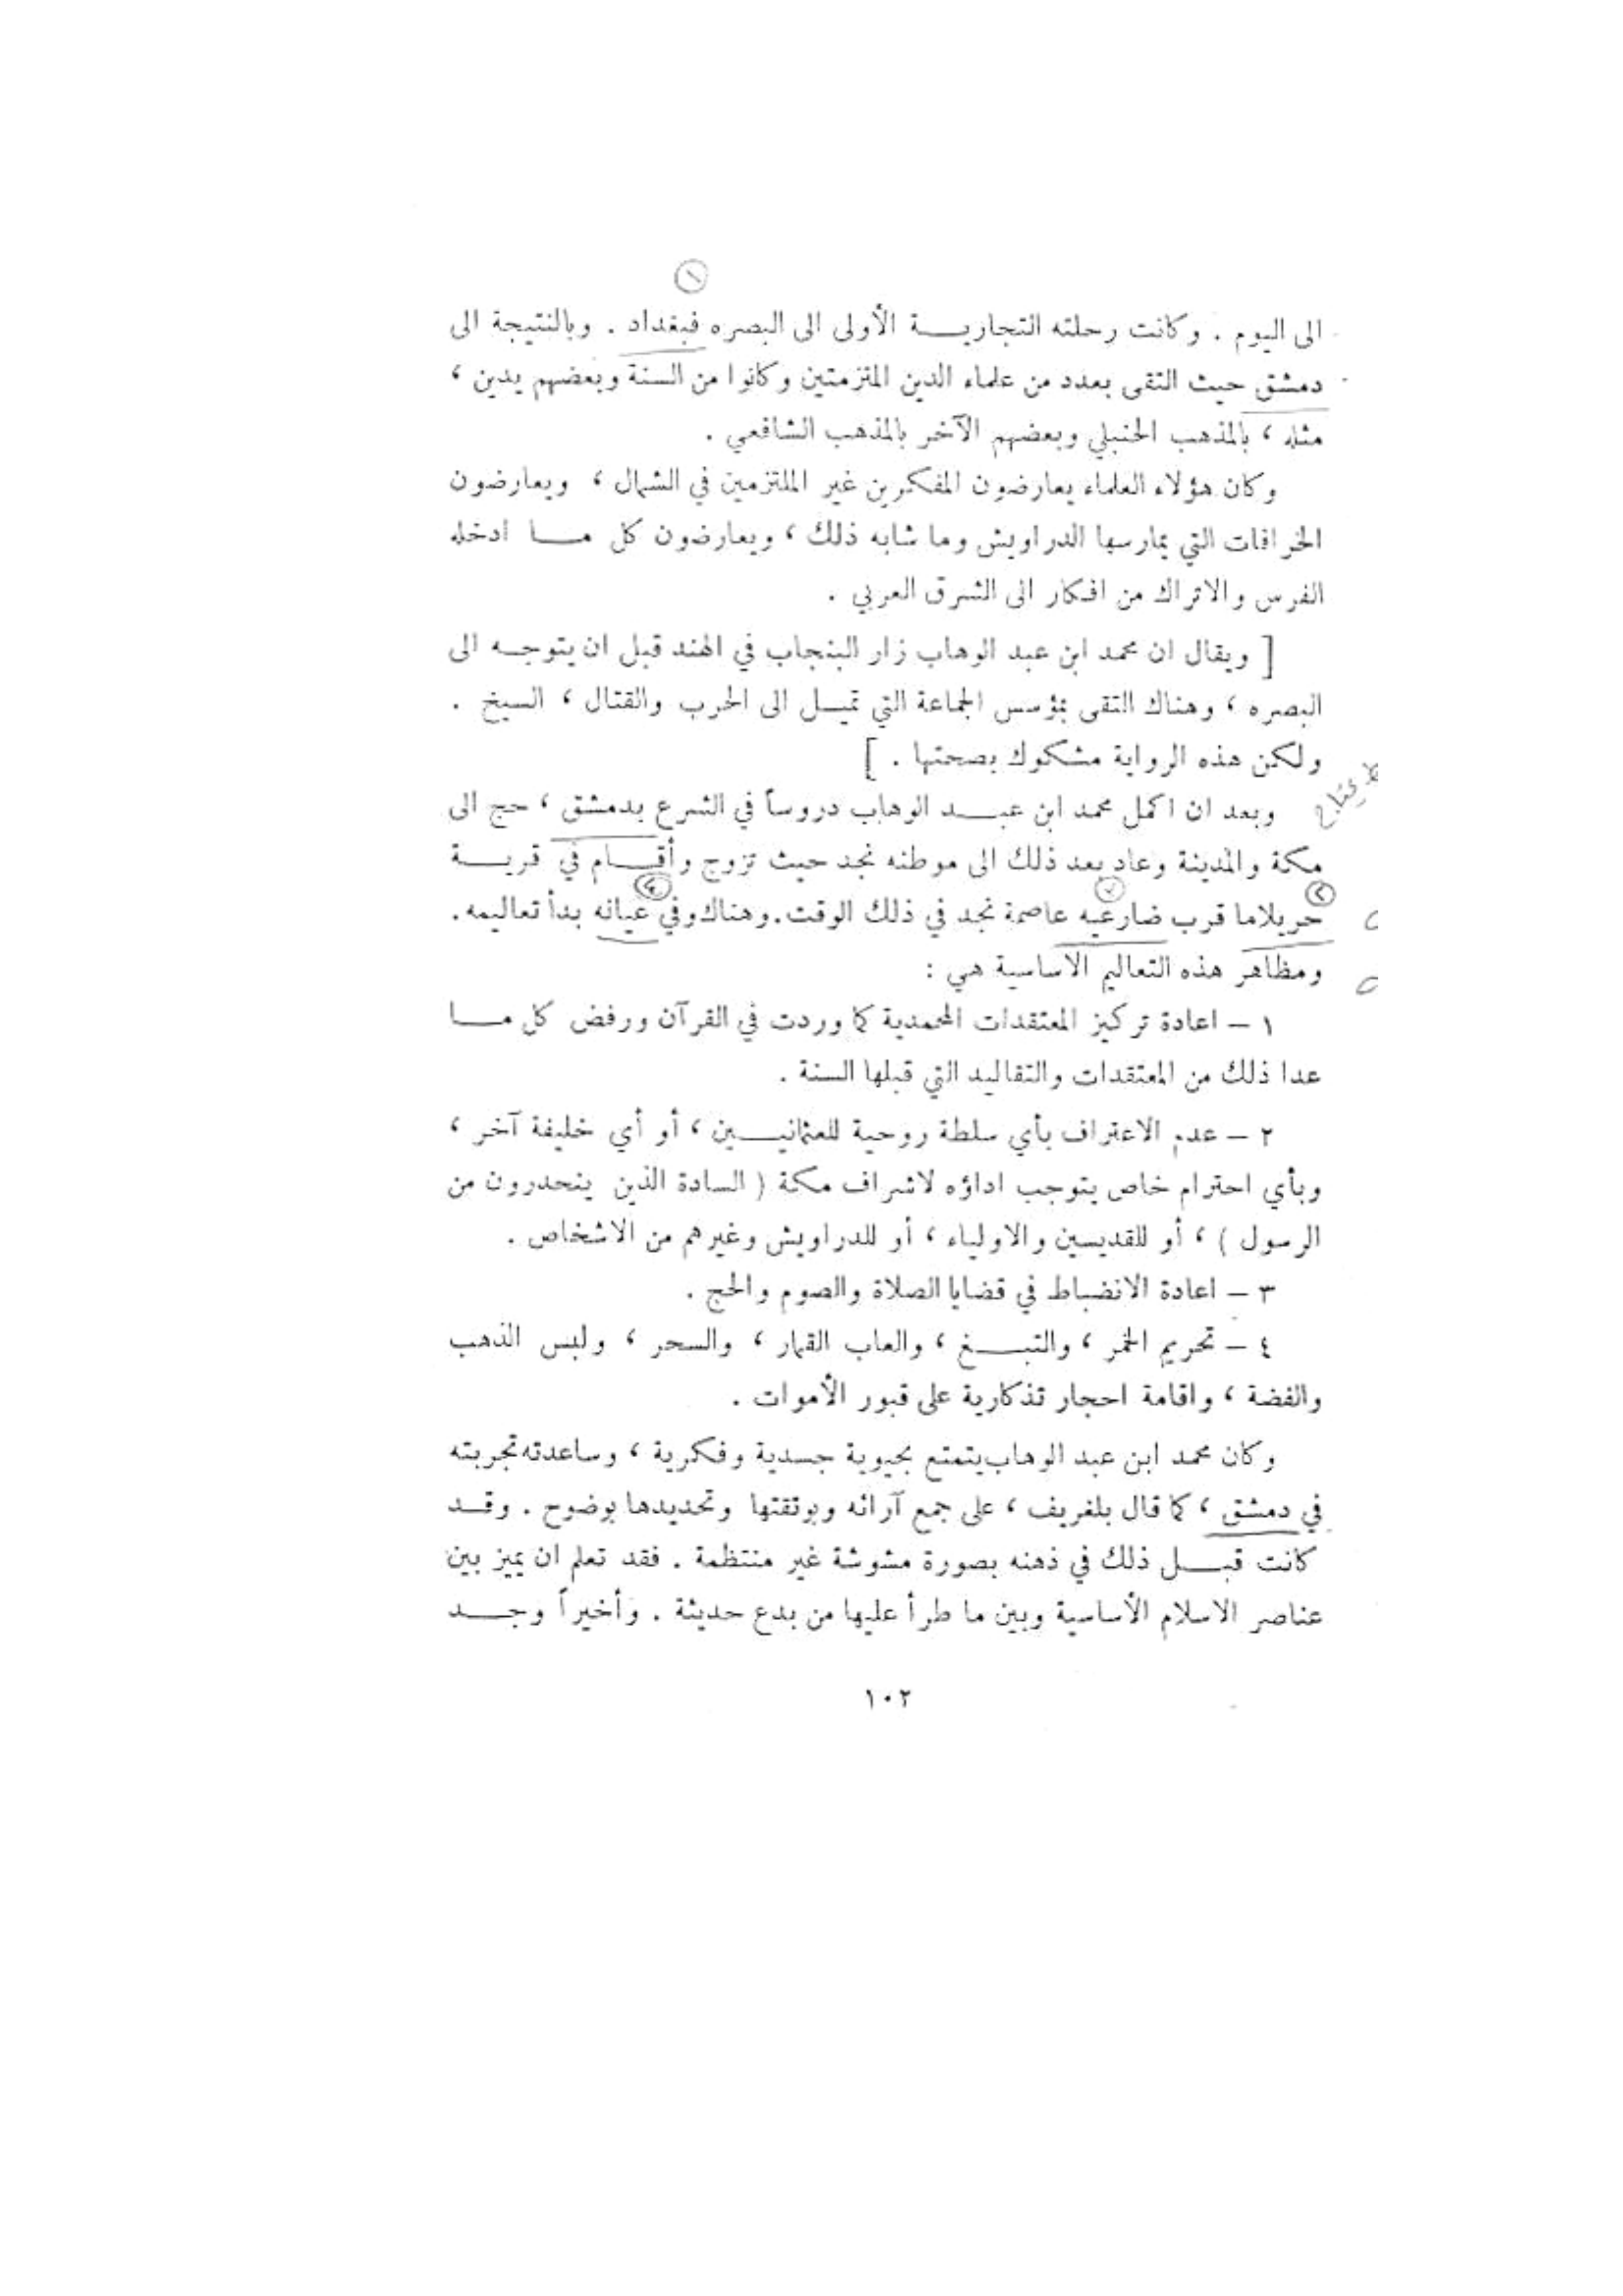 ١
الى اليوم . وكانت رحلته التجارية الأولى الى البصره فبغداد . وبالنتيجة الى
دمشق حيث التقى بعدد من علماء الدين المتزمتين وكانوا من السنة وبعضهم يدين ،
مثله ، بالمذهب الحنبلي وبعضهم الآخر بالمذهب الشافعي .
وكان هؤلاء العلماء يعارضون المفكرين غير الملتزمين في الشمال ، ويعارضون
الخرافات التي يمارسها الدراويش وما شابه ذلك ، ويعارضون كل ما ادخله
الفرس والاتراك من افكار الى الشرق العربي .
[ ويقال ان محمد ابن عبد الوهاب زار البنجاب في الهند قبل ان يتوجه الى
البصره ، وهناك التقى بمؤسس الجماعة التي تميل الى الحرب والقتال ، السيخ .
ولكن هذه الرواية مشكوك بصحتها . ]
وبعد ان اكمل محمد ابن عبد الوهاب دروساً في الشرع بدمشق ، حج الى
مكة والمدينة وعاد بعد ذلك الى موطنه نجد حيث تزوج وأقام في قرية
حريلاما قرب ضارعيه عاصمة نجد في ذلك الوقت . وهناك وفي عيانه بدأ تعاليمه .
ومظاهر هذه التعاليم الاساسية هي :
١ – اعادة تركيز المعتقدات المحمدية كما وردت في القرآن ورفض كل ما
عدا ذلك من المعتقدات والتقاليد التي قبلها السنة .
٢ – عدم الاعتراف بأي سلطة روحية للعثمانيين ، أو أي خليفة آخر ،
وبأي احترام خاص يتوجب اداؤه لاشراف مكة ( السادة الذين ينحدرون من
الرسول ) ، أو للقديسين والاولياء ، أو للدراويش وغيرهم من الاشخاص .
٣ – اعادة الانضباط في قضايا الصلاة والصوم والحج .
٤ – تحريم الخمر ، والتبغ ، والعاب القمار ، والسحر ، ولبس الذهب
والفضة ، واقامة احجار تذكارية على قبور الأموات .
وكان محمد ابن عبد الوهاب يتمتع بحيوية جسدية وفكرية ، وساعدته تجربته
في دمشق ، كما قال بلغريف ، على جمع آرائه وبوتقتها وتحديدها بوضوح . وقد
كانت قبل ذلك في ذهنه بصورة مشوشة غير منتظمة . فقد تعلم ان يميز بين
عناصر الاسلام الأساسية وبين ما طرأ عليها من بدع حديثة . وأخيراً وجد
١٠٢